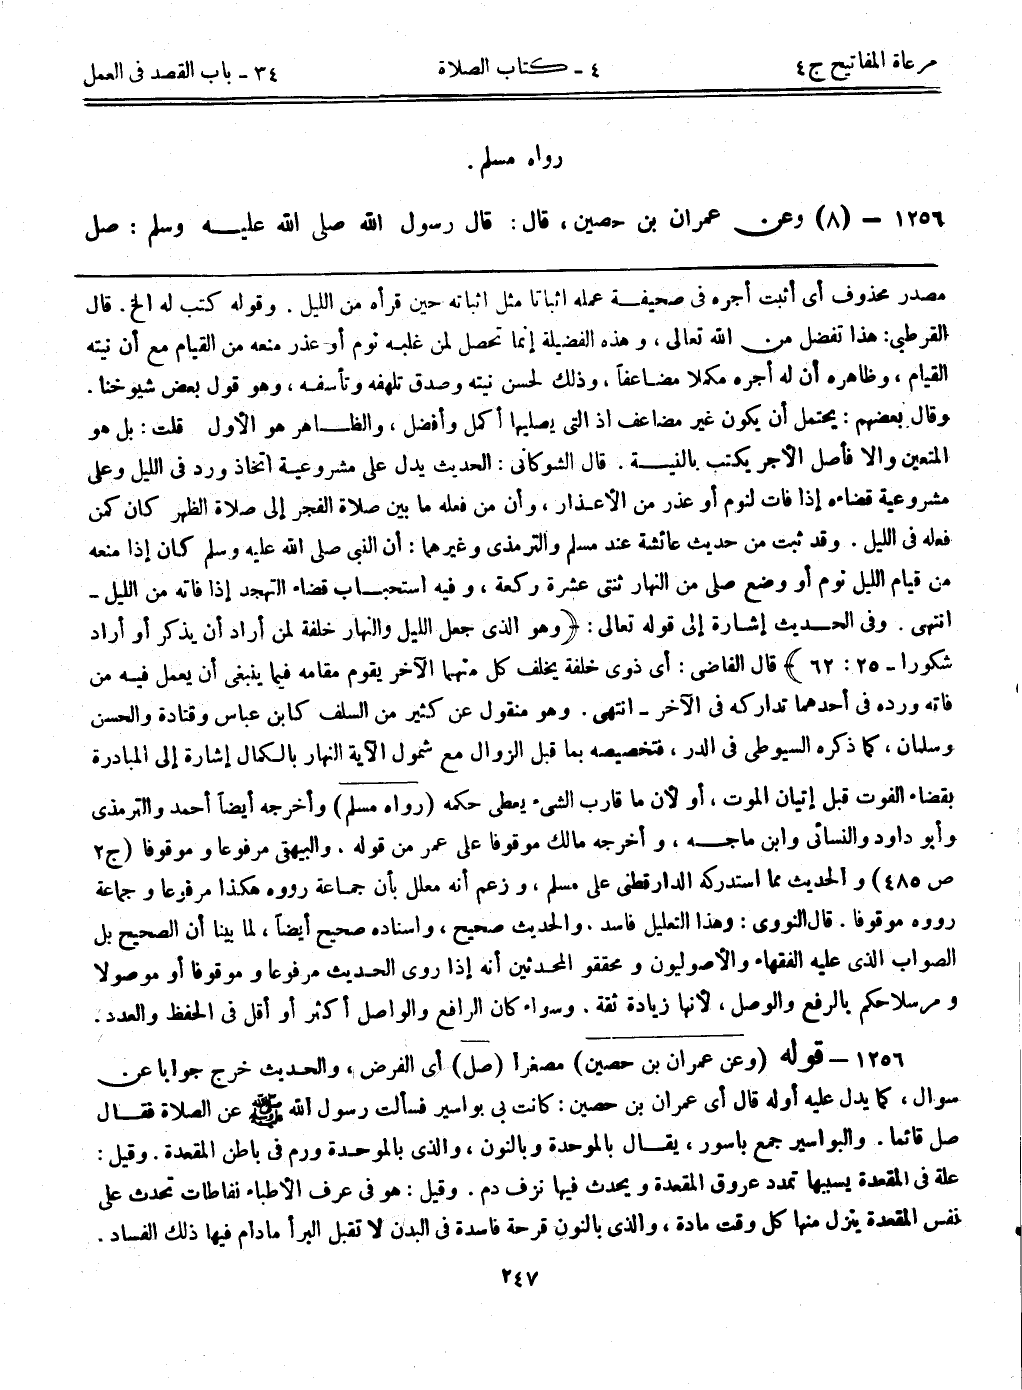 مرعاة المفاتيح ج٤
٤ ـ كتاب الصلاة
٣٤ ـ باب القصد فى العمل
رواه مسلم .
١٢٥٦ – (٨) وعن عمران بن حصين ، قال : قال رسول الله صلى الله عليه وسلم : صل
مصدر محذوف أى أثبت أجره فى صحيفة عمله اثباتا مثل اثباته حين قرأه من الليل . وقوله كتب له الخ . قال
القرطبي : هذا تفضل من الله تعالى ، و هذه الفضيلة إنما تحصل لمن غلبه نوم أو عذر منعه من القيام مع أن نيته
القيام ، وظاهره أن له أجره مكملا مضاعفاً ، وذلك لحسن نيته وصدق تلهفه وتأسفه ، وهو قول بعض شيوخنا .
وقال بعضهم : يحتمل أن يكون غير مضاعف اذ التى يصليها أكمل وأفضل ، والظاهر هو الأول قلت : بل هو
المتعين والا فأصل الأجر يكتب بالنية . قال الشوكانى : الحديث يدل على مشروعية اتخاذ ورد فى الليل وعلى
مشروعية قضاءه إذا فات لنوم أو عذر من الأعذار ، وأن من فعله ما بين صلاة الفجر إلى صلاة الظهر كان كمن
فعله فى الليل . وقد ثبت من حديث عائشة عند مسلم والترمذى وغيرهما : أن النبى صلى الله عليه وسلم كان إذا منعه
من قيام الليل نوم أو وضع صلى من النهار ثنتى عشرة ركعة ، و فيه استحباب قضاء التهجد إذا فاته من الليل ـ
انتهى . وفى الحديث إشارة إلى قوله تعالى : ﴿ وهو الذى جعل الليل والنهار خلفة لمن أراد أن يذكر أو أراد
شكورا ـ ٢٥ : ٦٢ ﴾ قال القاضى : أى ذوى خلفة يخلف كل منهما الآخر يقوم مقامه فيما ينبغى أن يعمل فيه من
فاته ورده فى أحدهما تداركه فى الآخر ـ انتهى . وهو منقول عن كثير من السلف كابن عباس وقتادة والحسن
وسلمان ، كما ذكره السيوطى فى الدر ، فتخصيصه بما قبل الزوال مع شمول الآية النهار بالكمال إشارة إلى المبادرة
بقضاء الفوت قبل إتيان الموت ، أو لأن ما قارب الشىء يعطى حكمه (رواه مسلم) وأخرجه أيضاً أحمد والترمذى
وأبو داود والنسائى وابن ماجه ، و أخرجه مالك موقوفا على عمر من قوله . والبيهقى مرفوعا و موقوفا (ج٢
ص ٤٨٥) و الحديث مما استدركه الدارقطنى على مسلم ، و زعم أنه معلل بأن جماعة رووه هكذا مرفوعا و جماعة
رووه موقوفا . قال النووى : وهذا التعليل فاسد . والحديث صحيح ، واسناده صحيح أيضاً ، لما بينا أن الصحيح بل
الصواب الذى عليه الفقهاء والأصوليون و محققو المحدثين أنه إذا روى الحديث مرفوعا و موقوفا أو موصولا
و مرسلا حكم بالرفع والوصل ، لأنها زيادة ثقة . وسواء كان الرافع والواصل أكثر أو أقل فى الحفظ والعدد .
١٢٥٦ – قوله (وعن عمران بن حصين) مصغرا (صل) أى الفرض ، والحديث خرج جوابا عن
سوال ، كما يدل عليه أوله قال أى عمران بن حصين : كانت بى بواسير فسألت رسول الله ﷺ عن الصلاة فقال
صل قائما . والبواسير جمع باسور ، يقال بالموحدة وبالنون ، والذى بالموحدة ورم فى باطن المقعدة . وقيل :
علة فى المقعدة يسببها تمدد عروق المقعدة و يحدث فيها نزف دم . وقيل : هو فى عرف الأطباء نفاطات تحدث على
نفس المقعدة ينزل منها كل وقت مادة ، والذى بالنون قرحة فاسدة فى البدن لا تقبل البرأ مادام فيها ذلك الفساد .
٢٤٧